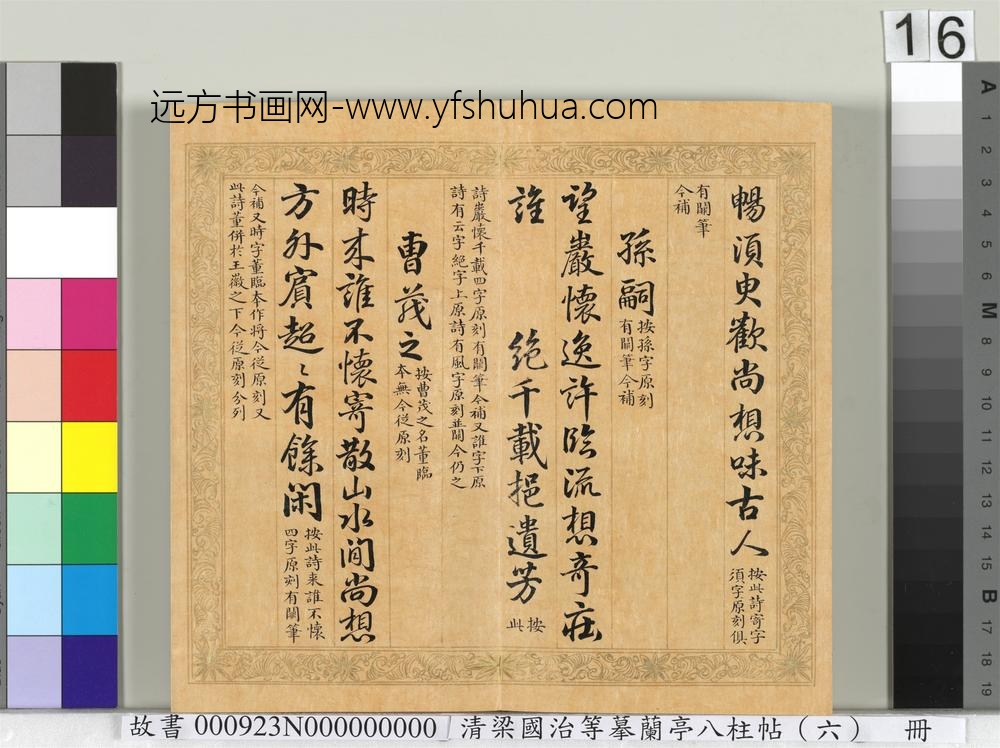 16
远方书画网-www.yfshuhua.com
暢須更歡尚想味古人
按此詩寄字
須字原刻俱
有闕筆
今補
孫嗣
按孫字原刻
有闕筆今補
望巖懷逸許臨流想奇莊
誰 絕千載挹遺芳
按
此
詩巖懷千載四字原刻有闕筆今補又誰字下原
詩有云字絕字上原詩有風字原刻並闕今仍之
曹茂之
按曹茂之名董臨
本無今從原刻
時來誰不懷寄散山水間尚想
方外賓超〻有餘閑
按此詩來誰不懷
四字原刻有闕筆
今補又時字董臨本作將今從原刻又
此詩董併於王徽之下今從原刻分列
A 1 2 3 4 5 6 M 8 9 10 11 12 13 14 15 B 17 18 19
故書 000923N000000000 清梁國治等摹蘭亭八柱帖（六） 冊